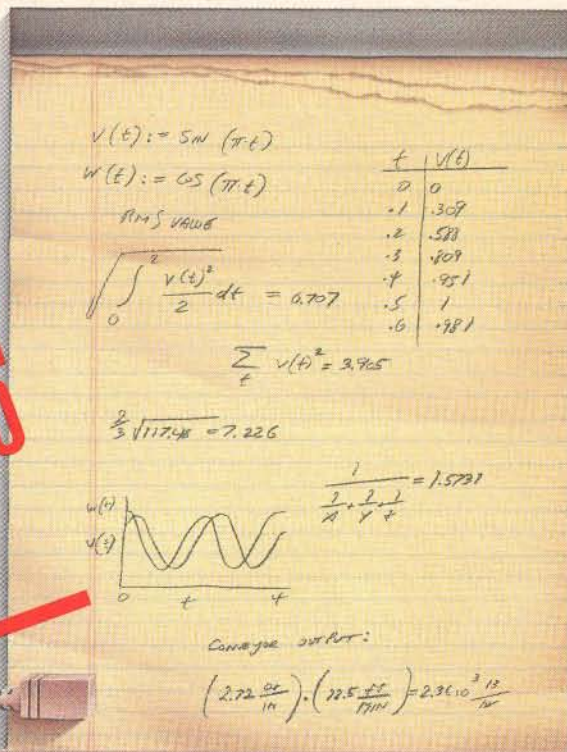 v(t) := SIN (π·t)
W(t) := COS (π·t)
RMS VALUE
√ ∫ 0 2 v(t)² / 2 dt = 0.707
t | V(t)
0 | 0
.1 | .309
.2 | .588
.3 | .809
.4 | .951
.5 | 1
.6 | .981
∑ t v(t)² = 3.905
2/3 √117.48 = 7.226
1 / (1/X + 1/Y + 1/Z) = 1.5731
W(t)
V(t)
0 t 4
OUTPUT:
(2.72 OZ/IN) · (72.5 FT/MIN) = 2.36·10³ lb/hr